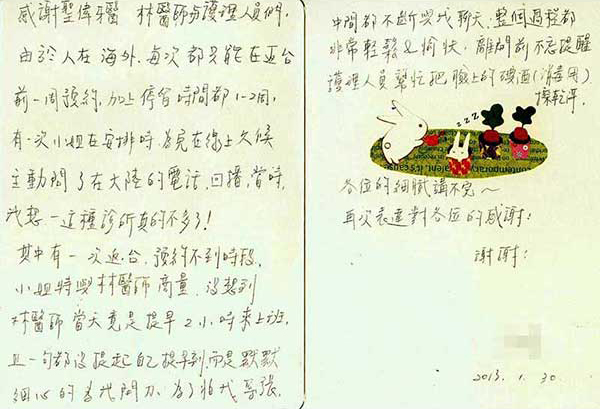 感謝聖偉牙醫 林醫師與護理人員們,
由於人在海外,每次都只能在返台
前一周預約,加上停留時間都1-2周,
有一次小姐在安排時,為免在線上久候
主動問了在大陸的電話,回撥,當時
我想~這種診所真的不多了!
其中有一次返台,預約不到時段,
小姐特與林醫師商量,沒想到
林醫師當天竟是提早2小時來上班,
且一句都沒提起自己提早到,而是默默
細心的為我開刀,為了怕我緊張,
中間都不斷與我聊天,整個過程都
非常輕鬆&愉快,離開前不忘提醒
護理人員幫忙把臉上的碘酒(消毒用)
擦乾淨.
zzz
contemporary
各位的細膩講不完~
再次表達對各位的感謝!
謝謝!
2013. 1. 30